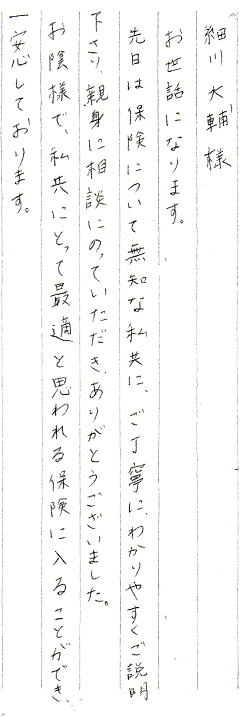 細川大輔様
お世話になります。
先日は保険について無知な私共に、ご丁寧に、わかりやすくご説明
下さり、親身に相談にのっていただき、ありがとうございました。
お陰様で、私共にとって最適と思われる保険に入ることができ、
一安心しております。